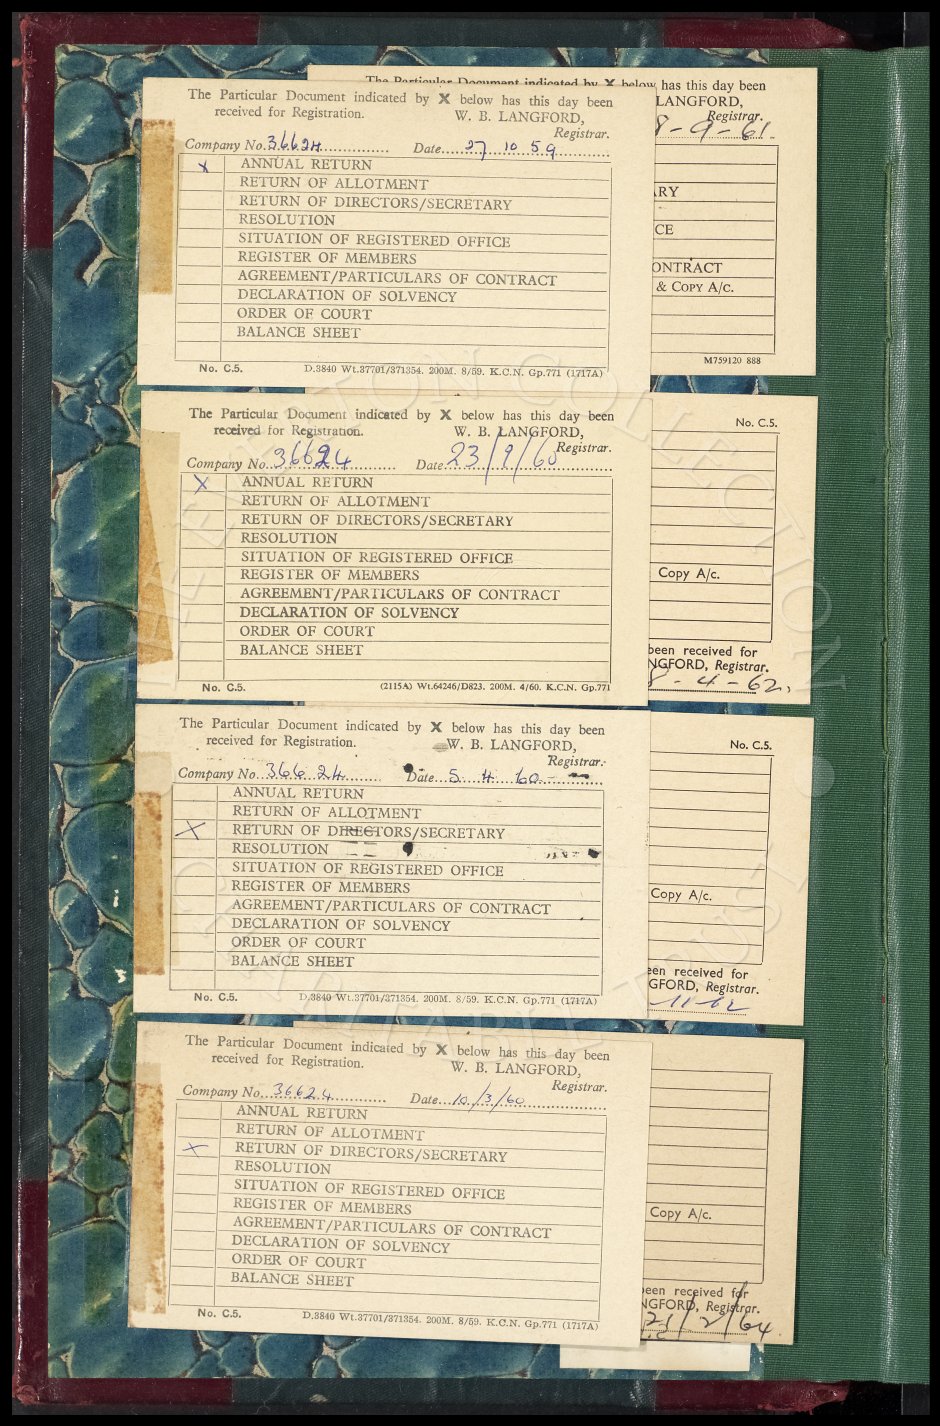 The Particular Document indicated by X below has this day been
LANGFORD,
Registrar.
8-9-61.
ARY
CE
ONTRACT
& COPY A/c.
M759120 888
The Particular Document indicated by X below has this day been
received for Registration. W. B. LANGFORD,
Registrar.
Company No. 36624 Date 27 10 59
X ANNUAL RETURN
RETURN OF ALLOTMENT
RETURN OF DIRECTORS/SECRETARY
RESOLUTION
SITUATION OF REGISTERED OFFICE
REGISTER OF MEMBERS
AGREEMENT/PARTICULARS OF CONTRACT
DECLARATION OF SOLVENCY
ORDER OF COURT
BALANCE SHEET
No. C.5. D.3840 Wt.37701/371354. 200M. 8/59. K.C.N. Gp.771 (1717A)
The Particular Document indicated by X below has this day been
received for Registration. W. B. LANGFORD,
Registrar.
Company No. 36624 Date 23/9/60
X ANNUAL RETURN
RETURN OF ALLOTMENT
RETURN OF DIRECTORS/SECRETARY
RESOLUTION
SITUATION OF REGISTERED OFFICE
REGISTER OF MEMBERS
AGREEMENT/PARTICULARS OF CONTRACT
DECLARATION OF SOLVENCY
ORDER OF COURT
BALANCE SHEET
No. C.5. (2115A) Wt.64246/D823. 200M. 4/60. K.C.N. Gp.771
No. C.5.
Copy A/c.
been received for
NGFORD, Registrar.
8-4-62.
The Particular Document indicated by X below has this day been
received for Registration. W. B. LANGFORD,
Registrar.
Company No. 36624 Date 5 4 60-
ANNUAL RETURN
RETURN OF ALLOTMENT
X RETURN OF DIRECTORS/SECRETARY
RESOLUTION
SITUATION OF REGISTERED OFFICE
REGISTER OF MEMBERS
AGREEMENT/PARTICULARS OF CONTRACT
DECLARATION OF SOLVENCY
ORDER OF COURT
BALANCE SHEET
No. C.5. D.3840 Wt.37701/371354. 200M. 8/59. K.C.N. Gp.771 (1717A)
No. C.5.
Copy A/c.
een received for
GFORD, Registrar.
-11-62
The Particular Document indicated by X below has this day been
received for Registration. W. B. LANGFORD,
Registrar.
Company No. 36624 Date 10/3/60
ANNUAL RETURN
RETURN OF ALLOTMENT
X RETURN OF DIRECTORS/SECRETARY
RESOLUTION
SITUATION OF REGISTERED OFFICE
REGISTER OF MEMBERS
AGREEMENT/PARTICULARS OF CONTRACT
DECLARATION OF SOLVENCY
ORDER OF COURT
BALANCE SHEET
No. C.5. D.3840 Wt.37701/371354. 200M. 8/59. K.C.N. Gp.771 (1717A)
Copy A/c.
been received for
NGFORD, Registrar.
21/2/64
COLLECTION
CHARITABLE TRUST